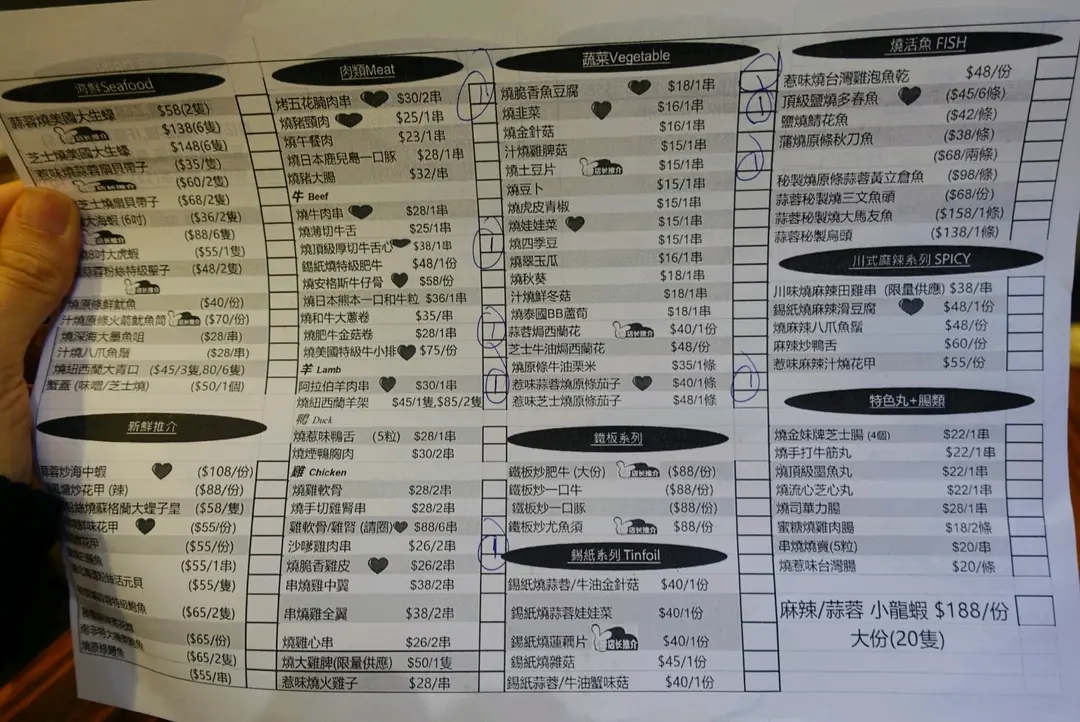 海鮮Seafood
蒜蓉燒美國大生蠔 $58(2隻)
店长推介 $138(6隻)
芝士燒美國大生蠔 $148(6隻)
惹味燒蒜蓉扇貝帶子 ($35/隻)
店长推介 ($60/2隻)
芝士燒扇貝帶子 ($68/2隻)
大海蝦 (6吋) ($36/2隻)
店长推介 ($88/6隻)
8吋大虎蝦 ($55/1隻)
蒜蓉粉絲特級聖子 ($48/2隻)
店长推介
燒原條鮮魷魚 ($40/份)
汁燒原條火箭魷魚筒 店长推介 ($70/份)
燒深海大墨魚咀 ($28/串)
汁燒八爪魚鬚 ($28/串)
燒紐西蘭大青口 ($45/3隻,80/6隻)
蟹蓋 (味噌/芝士燒) ($50/1個)
新鮮推介
蒜蓉炒海中蝦 ($108/份)
塘炒花甲 (辣) ($88/份)
粉絲燒蘇格蘭大蟶子皇 ($58/隻)
鮮味花甲 ($55/份)
花甲 ($55/份)
($55/1串)
粉絲活元貝 ($55/隻)
特級鮑魚
($65/2隻)
($65/份)
燒原條鱔魚 ($65/2隻)
($55/串)
肉類Meat
烤五花腩肉串 $30/2串
燒豬頸肉 $25/1串
燒午餐肉 $23/1串
燒日本鹿兒島一口豚 $28/1串
燒豬大腸 $32/串
牛 Beef
燒牛肉串 $28/1串
燒薄切牛舌 $25/1串
燒頂級厚切牛舌心 $38/1串
錫紙燒特級肥牛 $48/1份
燒安格斯牛仔骨 $58/份
燒日本熊本一口和牛粒 $36/1串
燒和牛大蔥卷 $35/串
燒肥牛金菇卷 $28/1串
燒美國特級牛小排 $75/份
羊 Lamb
阿拉伯羊肉串 $30/1串
燒紐西蘭羊架 $45/1隻,$85/2隻
鴨 Duck
燒惹味鴨舌 (5粒) $28/1串
燒煙鴨胸肉 $30/2串
雞 Chicken
燒雞軟骨 $28/2串
燒手切雞腎串 $28/2串
雞軟骨/雞腎 (請圈) $88/6串
沙嗲雞肉串 $26/2串
燒脆香雞皮 $26/2串
串燒雞中翼 $38/2串
串燒雞全翼 $38/2串
燒雞心串 $26/2串
燒大雞髀(限量供應) $50/1隻
惹味燒火雞子 $28/串
1
1
1
1
1
蔬菜Vegetable
燒脆香魚豆腐 $18/1串
燒韭菜 $16/1串
燒金針菇 $16/1串
汁燒雞脾菇 $15/1串
燒土豆片 店长推介 $15/1串
燒豆卜 $15/1串
燒虎皮青椒 $15/1串
燒娃娃菜 $15/1串
燒四季豆 $15/1串
燒翠玉瓜 $16/1串
燒秋葵 $18/1串
汁燒鮮冬菇 $18/1串
燒泰國BB蘆荀 $18/1串
蒜蓉焗西蘭花 店长推介 $40/1份
芝士牛油焗西蘭花 $48/份
燒原條牛油栗米 $35/1條
惹味蒜蓉燒原條茄子 $40/1條
惹味芝士燒原條茄子 $48/1條
鐵板系列
鐵板炒肥牛 (大份) 店长推介 ($88/份)
鐵板炒一口牛 ($88/份)
鐵板炒一口豚 ($88/份)
鐵板炒尤魚須 店长推介 $88/份
錫紙系列 Tinfoil
錫紙燒蒜蓉/牛油金針菇 $40/1份
錫紙燒蒜蓉娃娃菜 $40/1份
錫紙燒蓮藕片 店长推介 $40/1份
錫紙燒雜菇 $45/1份
錫紙蒜蓉/牛油蟹味菇 $40/1份
1
1
1
1
燒活魚 FISH
惹味燒台灣雞泡魚乾 $48/份
頂級鹽燒多春魚 ($45/6條)
鹽燒鯖花魚 ($42/條)
蒲燒原條秋刀魚 ($38/條)
($68/兩條)
秘製燒原條蒜蓉黃立倉魚 ($98/條)
蒜蓉秘製燒三文魚頭 ($68/份)
蒜蓉秘製燒大馬友魚 ($158/1條)
蒜蓉秘製烏頭 ($138/1條)
川式麻辣系列 SPICY
川味燒麻辣田雞串 (限量供應) $38/串
錫紙燒麻辣滑豆腐 $48/1份
燒麻辣八爪魚鬚 $48/份
麻辣炒鴨舌 $60/份
惹味麻辣汁燒花甲 $55/份
特色丸+腸類
燒金妹牌芝士腸 (4個) $22/1串
燒手打牛筋丸 $22/1串
燒頂級墨魚丸 $22/1串
燒流心芝心丸 $22/1串
燒司華力腸 $28/1串
蜜糖燒雞肉腸 $18/2條
串燒燒賣(5粒) $20/串
燒惹味台灣腸 $20/條
麻辣/蒜蓉 小龍蝦 $188/份
大份(20隻)